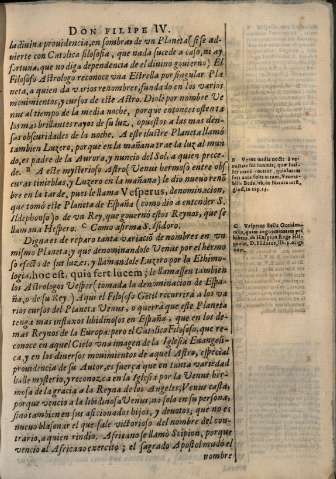 DON FILIPE IV.
la divina providencia, en sombras de vn Planeta (si se ad-
vierte con Catolica filosofia, que nada sucede a caso, ni ay
fortuna, que no diga dependencia de el divino govierno) El
Filosofo Astrologo reconoce vna Estrella por singular Pla-
neta, a quien da varios renombres, fundado en los varios
movimientos, y cursos de este Astro. Diole por nombre Ve-
nus al tiempo de la media noche, por que entonces ostenta
las mas brillantes rayos de su luz, opuestos a las mas den-
sas obscuridades de la noche. A este ilustre Planeta llamò
tambien Luzero, por que en la mañana trae la luz al mun-
do, es padre de la Aurora, y nuncio del Sol, a quien prece-
de. A este mysterioso Astro (Venus hermoso entre obs-
curas tinieblas, y Luzero en la mañana) le dio nuevo renõ-
bre en la tarde, pues le llama Vesperus, denominacion,
que tomò este Planeta de España (como dio a entender S.
Ildephonso) ò de vn Rey, que governò estos Reynos, que se
llamava Hespero. Como afirma S. Isidoro.
Digna es de reparo tanta variedad de nombres en vn
mismo Planeta; y que denominandole Venus por el hermo-
so aspecto de sus luzes, y llamandole Luzero por la Ethimo-
logia, hoc est, quia fert lucem; le llamassen tambien
los Astrologos Vesper (tomada la denominacion de Espa-
ña, ò de su Rey) Aqui el Filosofo Gentil recurrirà a los va-
rios cursos del Planeta Venus, ò querrà que este Planeta
tenga mas influxos libidinosos en España, que en los de-
mas Reynos de la Europa: pero el Catolico Filosofo, que re-
conoce en aquel Cielo vna imagen de la Iglesia Evangeli-
ca, y en los diversos movimientos de aquel Astro, especial
providencia de su Autor, es fuerça que en tanta variedad
halle mysterio, y reconozca en la Iglesia por la Venus her-
mosa de la gracia a la Reyna de los Angeles; Venus casta,
por que vencio a la libidinosa Venus, no solo en su persona,
sino tambien en sus aficionados hijos, y devotos; que no es
nuevo blasonar el que sale victorioso del nombre del con-
trario, a quien rindio. Africano se llamò Scipion, porque
vencio al Africano exercito; el sagrado Apostol mudò el
nombre